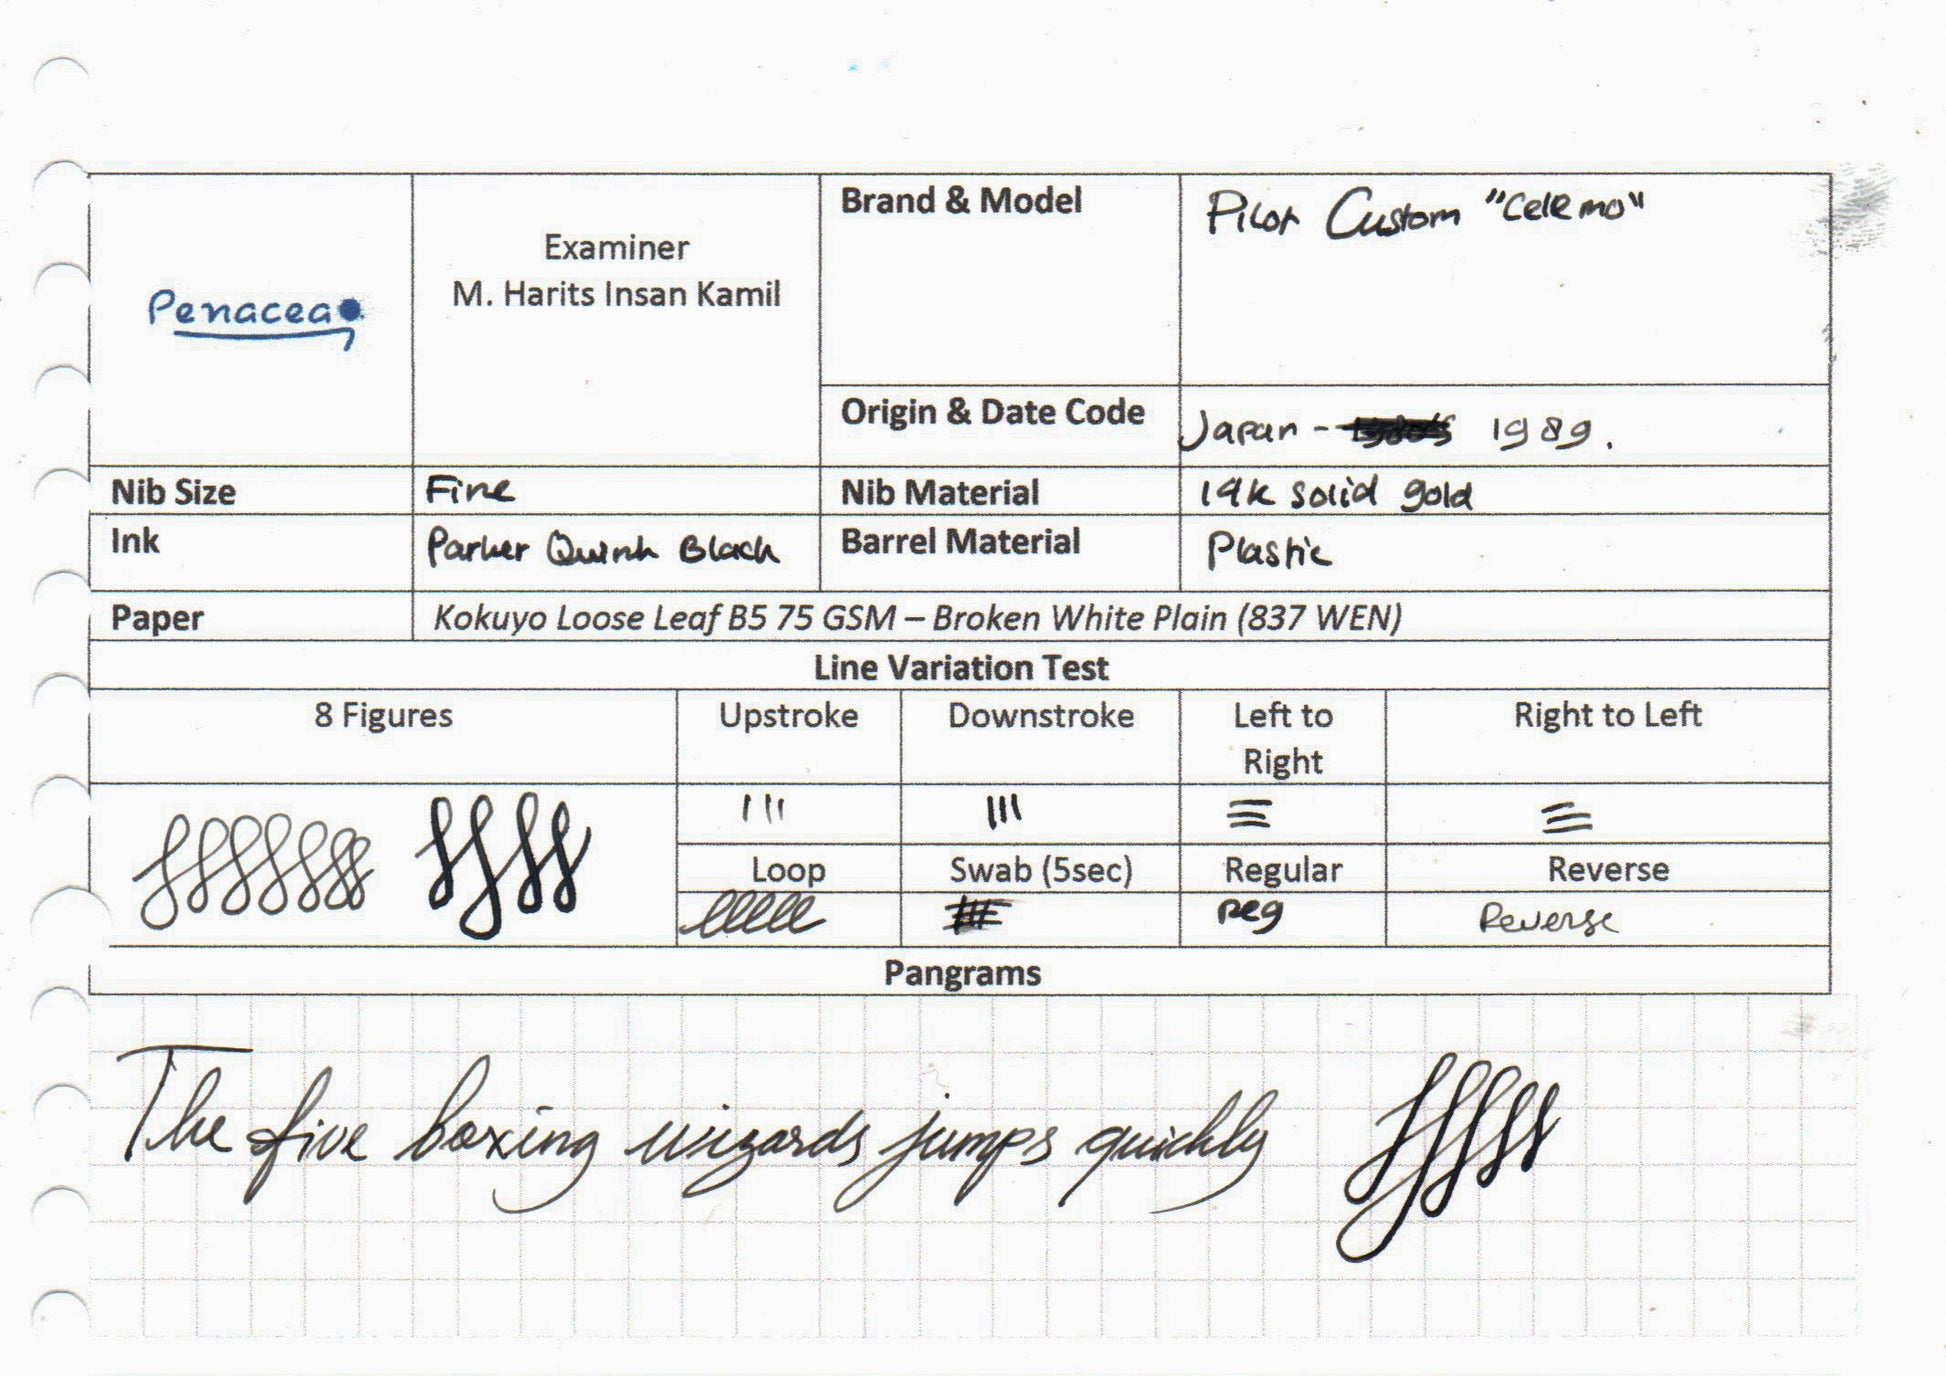 Penacea
Examiner
M. Harits Insan Kamil
Brand & Model
Pilot Custom "Celemo"
Origin & Date Code
Japan - 1989.
Nib Size
Fine
Nib Material
14k solid gold
Ink
Parker Quink Black
Barrel Material
Plastic
Paper
Kokuyo Loose Leaf B5 75 GSM – Broken White Plain (837 WEN)
Line Variation Test
8 Figures
Upstroke
Downstroke
Left to
Right
Right to Left
Loop
Swab (5sec)
Regular
Reverse
Reg
Reverse
Pangrams
The five boxing wizards jumps quickly